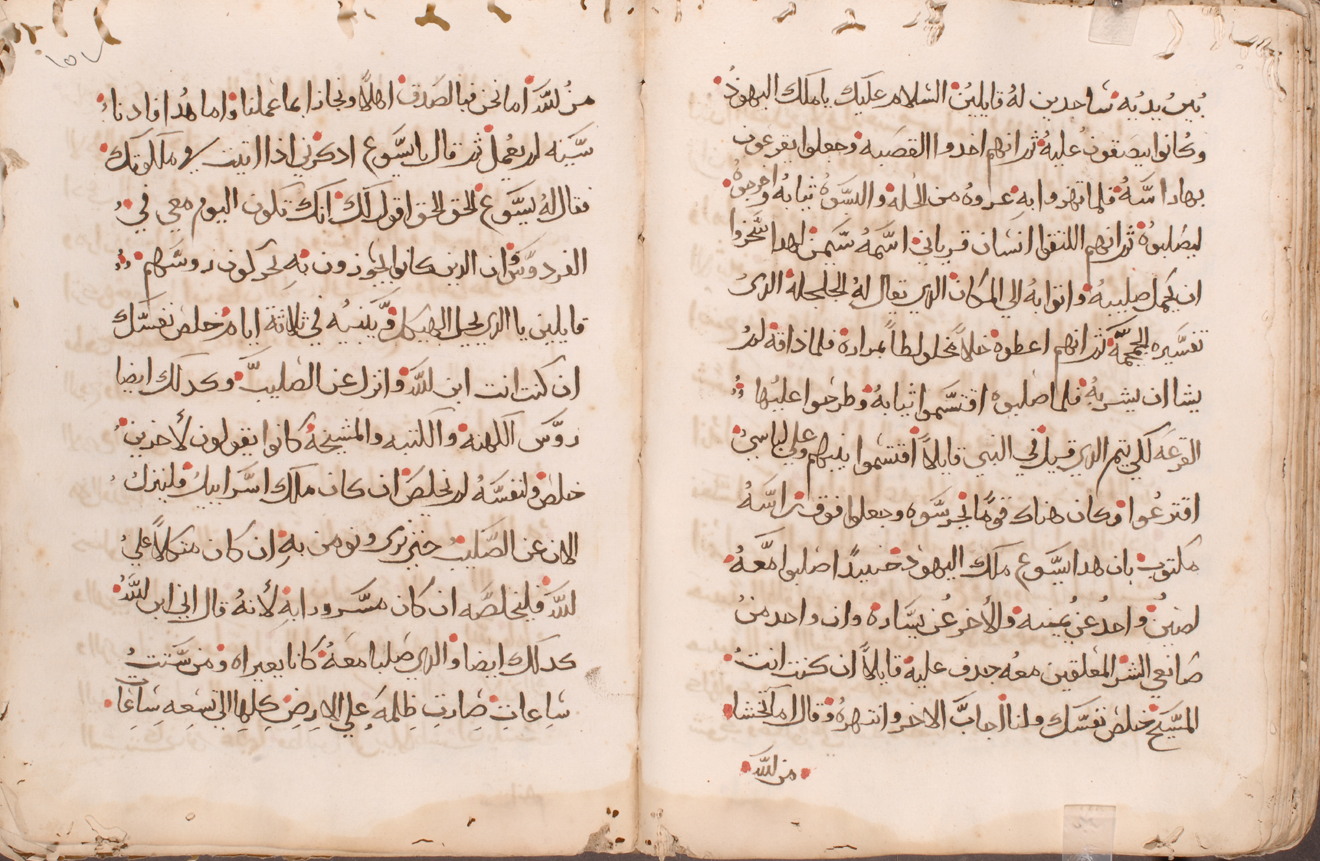 بين يديه ساجدين له قايلين السلام عليك ياملك اليهود
وكانوا يبصقون عليه ثم انهم اخدوا القصبه وجعلوا يقرعون
بها راسه فلما تهزوا به عروه من الحله والبسوه ثيابه واخرجوه
ليصلبوه ثم انهم التقوا انسان قرياني اسمه سيمن لهدا سخروا
ان يحمل صليبه واتوا به الي المكان الدي يقال له الجلجلة الدي
تفسيره الجمجمة ثم انهم اعطوه خلاً مخلولطاً بمرارة فلما ذاقة لم
يشا ان يشربه فلما اصلبوه اقتسموا ثيابه وطرحوا عليها
القرعه لكي يتم الدي قيل في النبي قايلاً اقتسموا بينهم وعلي لباسي
اقترعوا وكان هناك قوماً يحرسوه وجعلوا فوق راسه
مكتوب بان هدا يسوع ملك اليهود حينيدًا اصلبوا معه
لصين واحد عن يمينه والأخر عن يساره وان واحد من
صانعي الشر المعلقين معه جدف عليه قايلاً ان كنت انت
المسيح خلص نفسك ولنا اجاب الاخر وانتهره وقال اما تخشا
من الله
١٥٧
من الله اما نحن فبالصدق اهلاً ونجازا بما عملنا واما هدا فادناء
سيه لم يعمل ثم قال يا يسوع ادكرني اذا اتيت في ملكوتك
فقال له يسوع الحق الحق اقول لك انك تكون اليوم معي في
الفردوس وان الدين كانوا يجوزون به يحركون روسهم
قايلين يا الدي يحل الهيكل ويبنيه في ثلاثة ايام خلص نفسك
ان كنت انت ابن الله وانزل عن الصليب وكدلك ايضا
روس الكهنه والكتبه والمشيخة كانوا يقولون لأخرين
خلص ولنفسه لم يخلص ان كان ملك اسراييل فلينزل
الان عن الصليب حتي نري ونومن به ان كان متكلاً علي
الله فليخلصه ان كان مسرور ابه لأنه قال اني ابن الله
كدلك ايضا والدي صلبا معه كانا يعيراه ومن ستت
ساعات صارت ظلمه علي الارض كلها الي تسعه ساعا